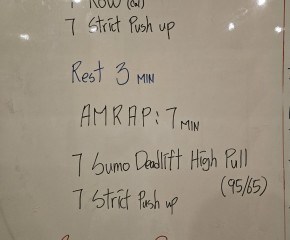 7 Row (Cal)
7 Strict Push up
Rest 3 MIN
AMRAP: 7 MIN
7 Sumo Deadlift High Pull
(95/65)
7 Strict Push up